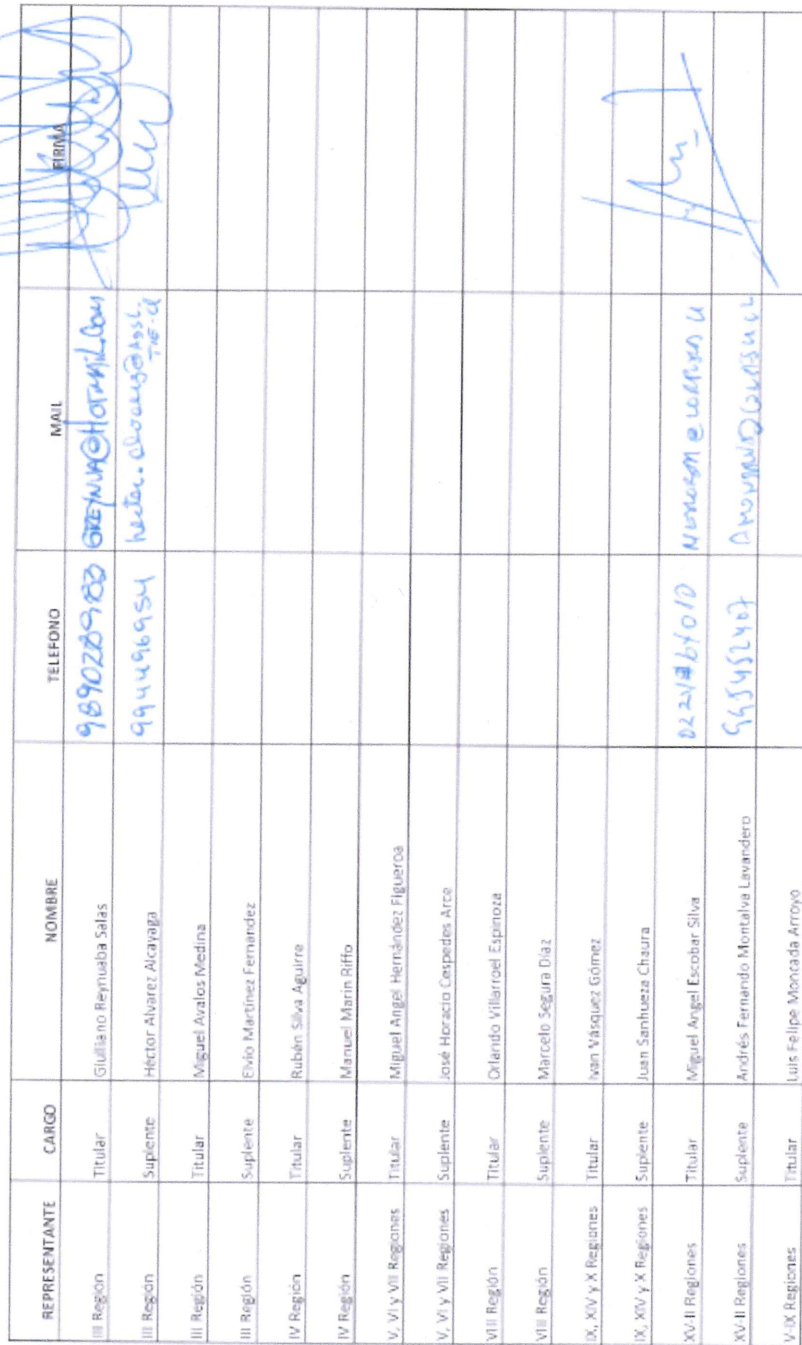 REPRESENTANTE CARGO NOMBRE TELEFONO MAIL FIRMA
III Región Titular Giulliano Reynuaba Salas 989028983 GREYNUA@HOTMAIL.COM
III Región Suplente Héctor Alvarez Alcayaga 994496954 hector.alvarez@
III Región Titular Miguel Avalos Medina
III Región Suplente Elvio Martínez Fernández
IV Región Titular Rubén Silva Aguirre
IV Región Suplente Manuel Marin Riffo
V, VI y VII Regiones Titular Miguel Angel Hernández Figueroa
V, VI y VII Regiones Suplente José Horacio Cespedes Arce
VIII Región Titular Orlando Villarroel Espinoza
VIII Región Suplente Marcelo Segura Díaz
IX, XIV y X Regiones Titular Ivan Vásquez Gómez
IX, XIV y X Regiones Suplente Juan Sanhueza Chaura
XV-II Regiones Titular Miguel Angel Escobar Silva
XV-II Regiones Suplente Andrés Fernando Montalva Lavandero 995452407
V-IX Regiones Titular Luis Felipe Moncada Arroyo